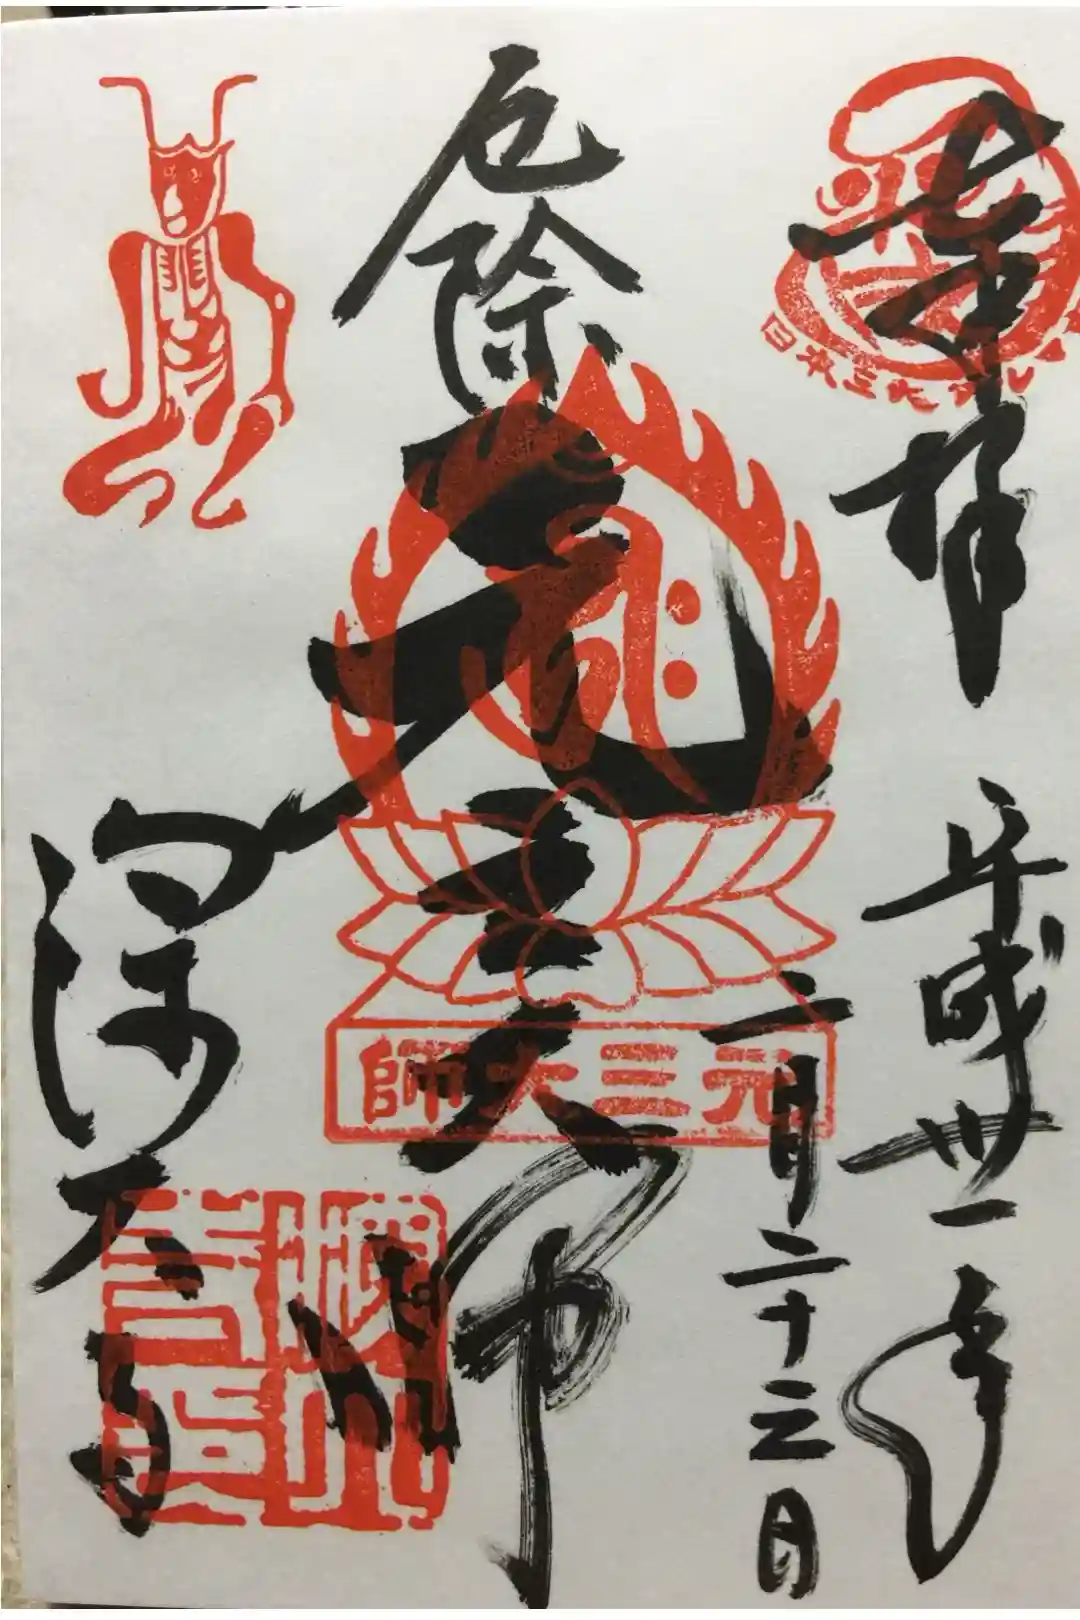 奉拝
平成卅一年
二月二十三日
厄除
元三大師
深大寺
日本三大
元三大師